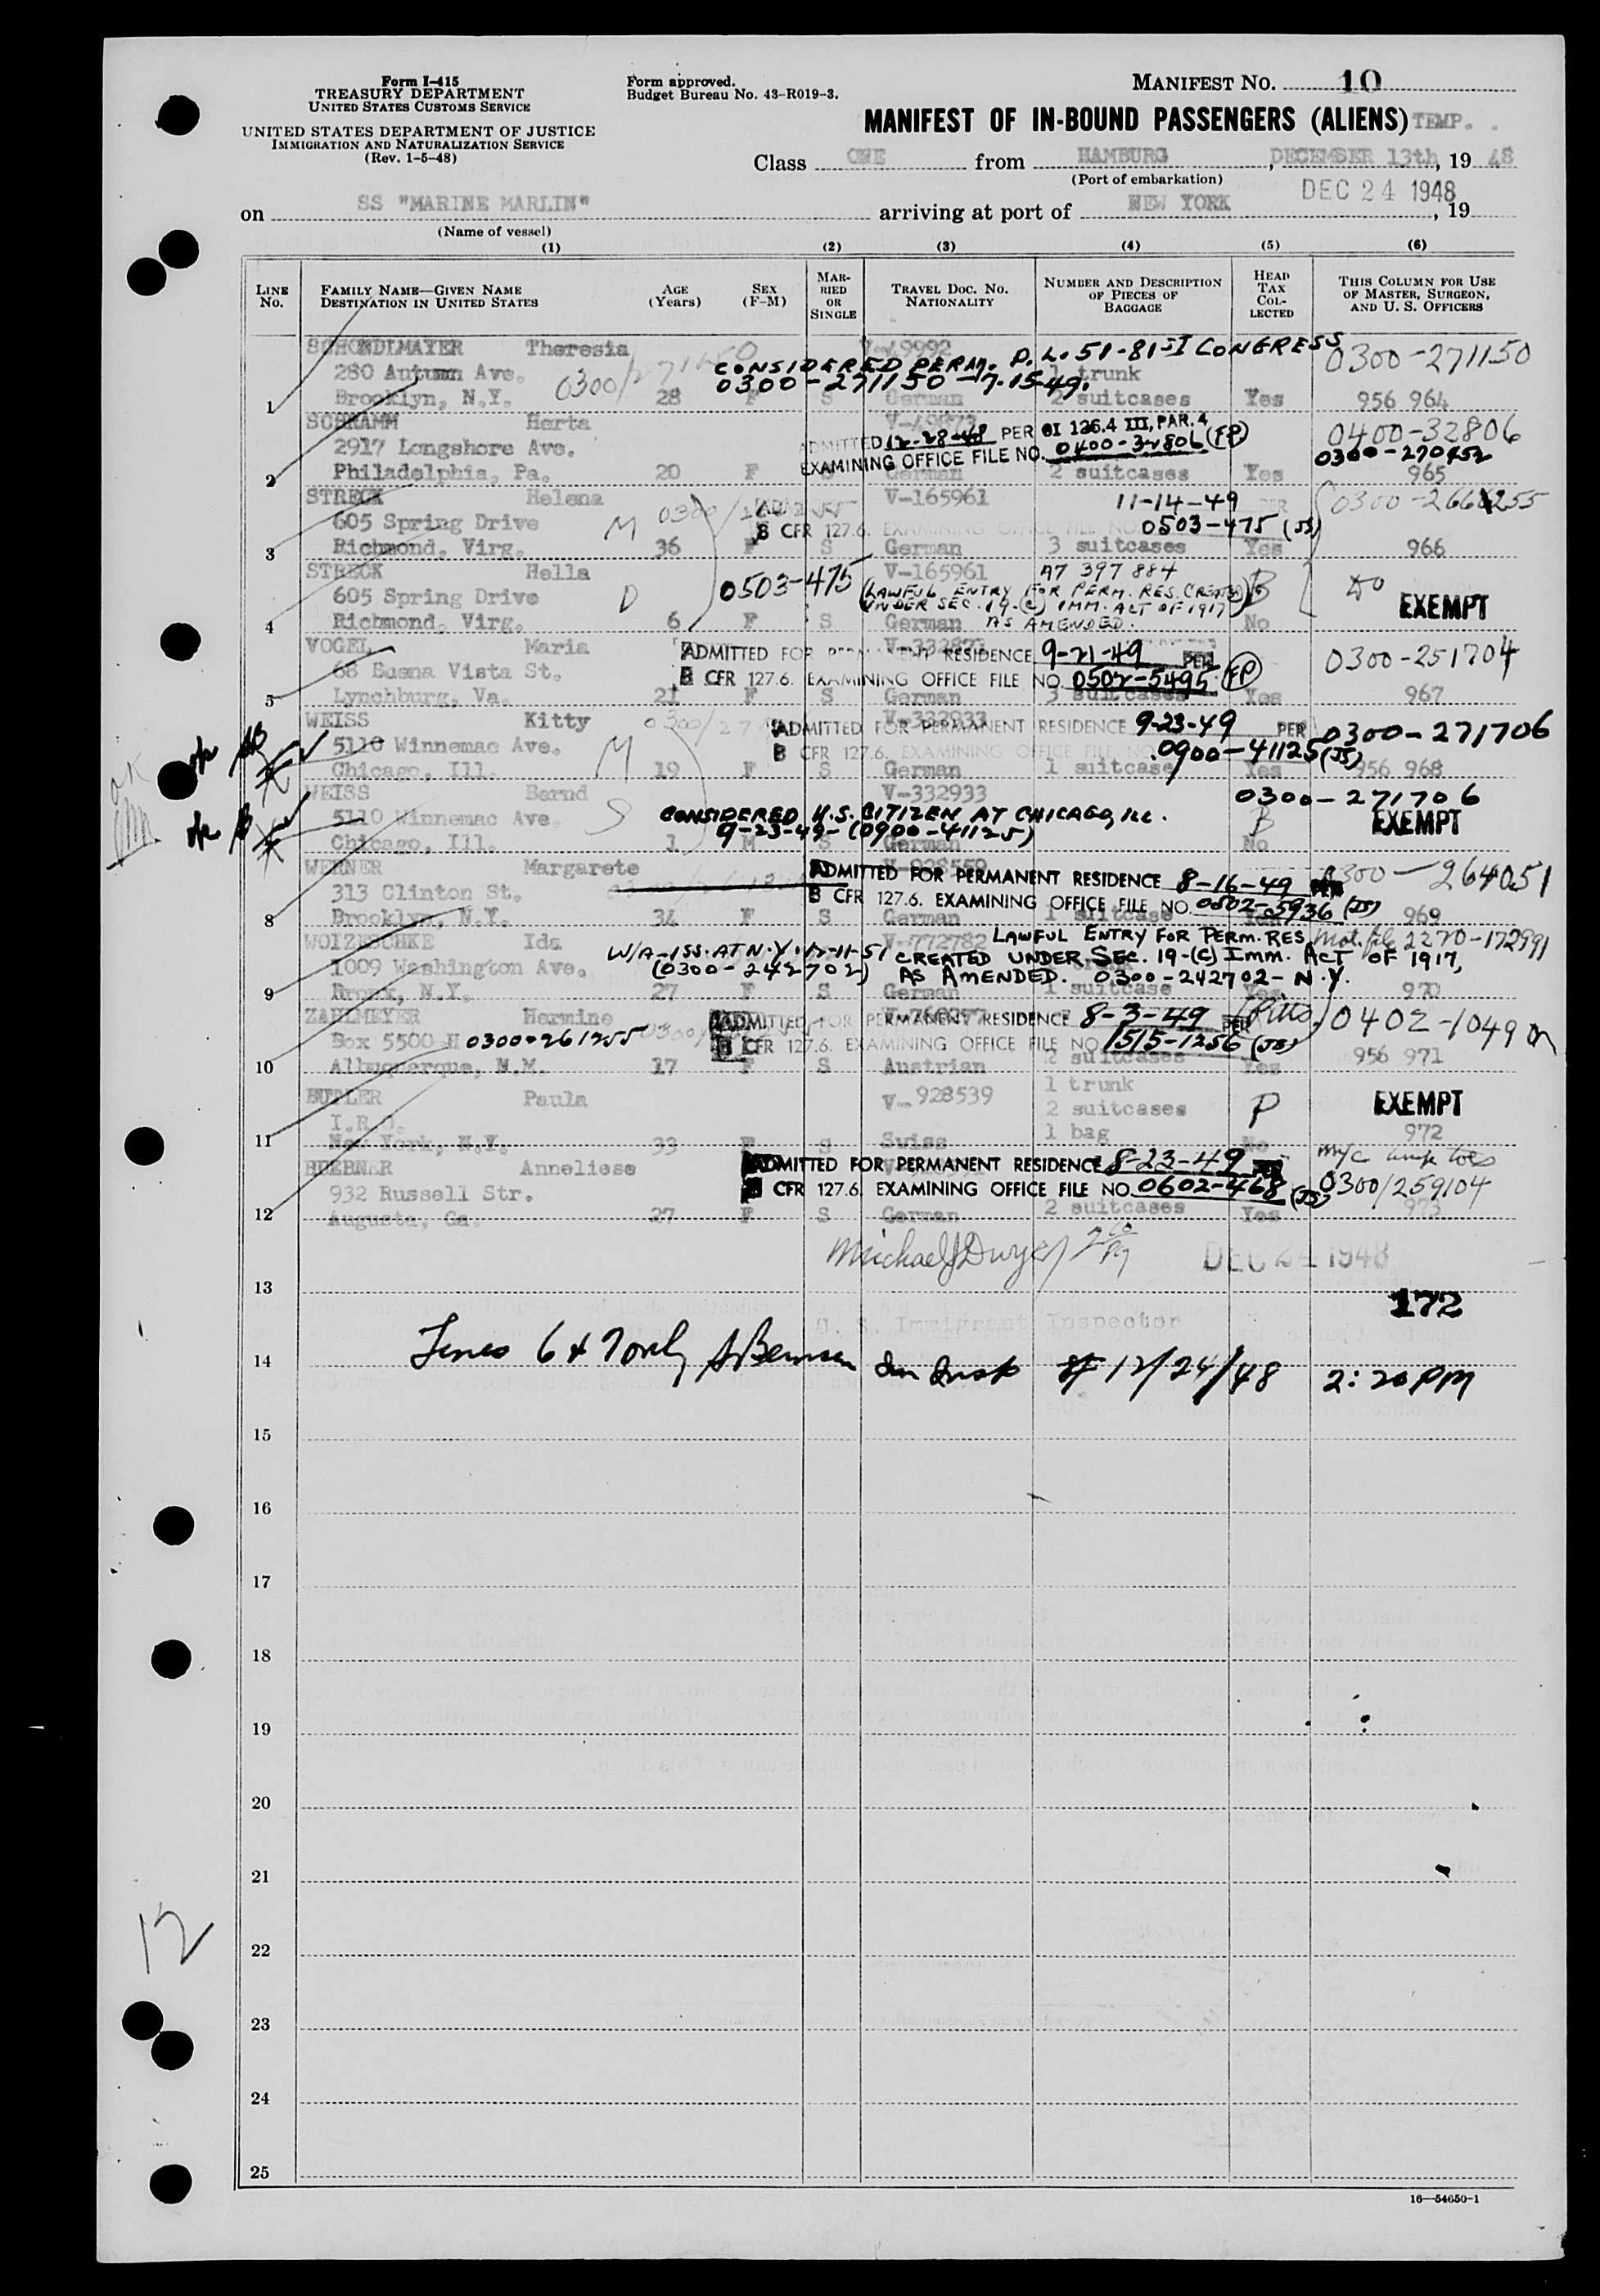 Form I-415
TREASURY DEPARTMENT
UNITED STATES CUSTOMS SERVICE
UNITED STATES DEPARTMENT OF JUSTICE
IMMIGRATION AND NATURALIZATION SERVICE
(Rev. 1-5-48)
Form approved.
Budget Bureau No. 43-R019-3.
MANIFEST NO. 10
MANIFEST OF IN-BOUND PASSENGERS (ALIENS) TEMP.
Class ONE from HAMBURG, DECEMBER 13th, 19 48
(Port of embarkation)
DEC 24 1948
on SS "MARINE MARLIN" arriving at port of NEW YORK, 19
(Name of vessel)
(1) (2) (3) (4) (5) (6)
LINE No. FAMILY NAME—GIVEN NAME DESTINATION IN UNITED STATES AGE (Years) SEX (F-M) MARRIED OR SINGLE TRAVEL DOC. NO. NATIONALITY NUMBER AND DESCRIPTION OF PIECES OF BAGGAGE HEAD TAX COLLECTED THIS COLUMN FOR USE OF MASTER, SURGEON, AND U. S. OFFICERS
SCHONDLMAYER Theresia V-49992 0300-271150
CONSIDERED PERM. P.L. 51-81ST CONGRESS
280 Autumn Ave. 0300/271150 1 trunk
0300-271150-7-15-49.
1 Brooklyn, N.Y. 28 F S German 2 suitcases Yes 956 964
SCHRAMM Herta 0400-32806
ADMITTED 12-28-48 PER OI 126.4 III, PAR. 4
2917 Longshore Ave. 0300-270452
EXAMINING OFFICE FILE NO. 0400-32806 (FP)
2 Philadelphia, Pa. 20 F S German 2 suitcases Yes 965
STRECK Helena V-165961 11-14-49 PER
605 Spring Drive M
8 CFR 127.6. EXAMINING OFFICE FILE NO. 0503-475 (JS)
3 Richmond, Virg. 36 F S German 3 suitcases Yes 966
STRECK Hella V-165961 A7 397 884
605 Spring Drive D 0503-475 (LAWFUL ENTRY FOR PERM. RES. CREATED B do EXEMPT
UNDER SEC. 19-(C) IMM. ACT OF 1917
4 Richmond, Virg. 6 F S German AS AMENDED. No
VOGEL Maria
ADMITTED FOR PERMANENT RESIDENCE 9-21-49 PER 0300-251704
68 Buena Vista St.
8 CFR 127.6. EXAMINING OFFICE FILE NO. 0502-5495 (FP)
5 Lynchburg, Va. 21 F S German 3 suitcases Yes 967
WEISS Kitty V-332933
ADMITTED FOR PERMANENT RESIDENCE 9-23-49 PER 0300-271706
5110 Winnemac Ave. M
8 CFR 127.6. EXAMINING OFFICE FILE NO. 0900-41125 (JS)
Chicago, Ill. 19 F S German 1 suitcase Yes 956 968
WEISS Bernd V-332933 0300-271706
5110 Winnemac Ave. S CONSIDERED U.S. CITIZEN AT CHICAGO, ILL. B EXEMPT
9-23-49-(0900-41125)
Chicago, Ill. 1 M S German No
WERNER Margarete V-928559
ADMITTED FOR PERMANENT RESIDENCE 8-16-49 PER 0300-264051
313 Clinton St.
8 CFR 127.6. EXAMINING OFFICE FILE NO. 0502-5936 (JS)
8 Brooklyn, N.Y. 34 F S German 1 suitcase 969
WOIZESCHKE Ida V-772782 LAWFUL ENTRY FOR PERM. RES. 2270-172991
W/A-ISS. AT N.Y. 12-11-51 CREATED UNDER SEC. 19-(C) IMM. ACT OF 1917,
1009 Washington Ave. (0300-242702) AS AMENDED. 0300-242702-N.Y.
9 Bronx, N.Y. 27 F S German 1 suitcase Yes 970
ZAHLMEYER Hermine
ADMITTED FOR PERMANENT RESIDENCE 8-3-49 PER (Pitts.) 0402-1049
Box 5500 H 0300-261255
8 CFR 127.6. EXAMINING OFFICE FILE NO. 1515-1256 (JS)
10 Albuquerque, N.M. 17 F S Austrian 2 suitcases Yes 956 971
BUTLER Paula V-928539 1 trunk EXEMPT
I.R.O. 2 suitcases P
11 New York, N.Y. 33 F S Swiss 1 bag No 972
HUEBNER Anneliese
ADMITTED FOR PERMANENT RESIDENCE 8-23-49 PER
932 Russell Str. 0300/259104
8 CFR 127.6. EXAMINING OFFICE FILE NO. 0602-468 (JS)
12 Augusta, Ga. 27 F S German 2 suitcases Yes 973
Michael J Dwyer DEC 24 1948
13
172
U. S. Immigrant Inspector
14 Lines 6 & 7 only Im Insp 12/24/48 2:20 PM
15
16
17
18
19
20
21
12
22
23
24
25
16—54650-1